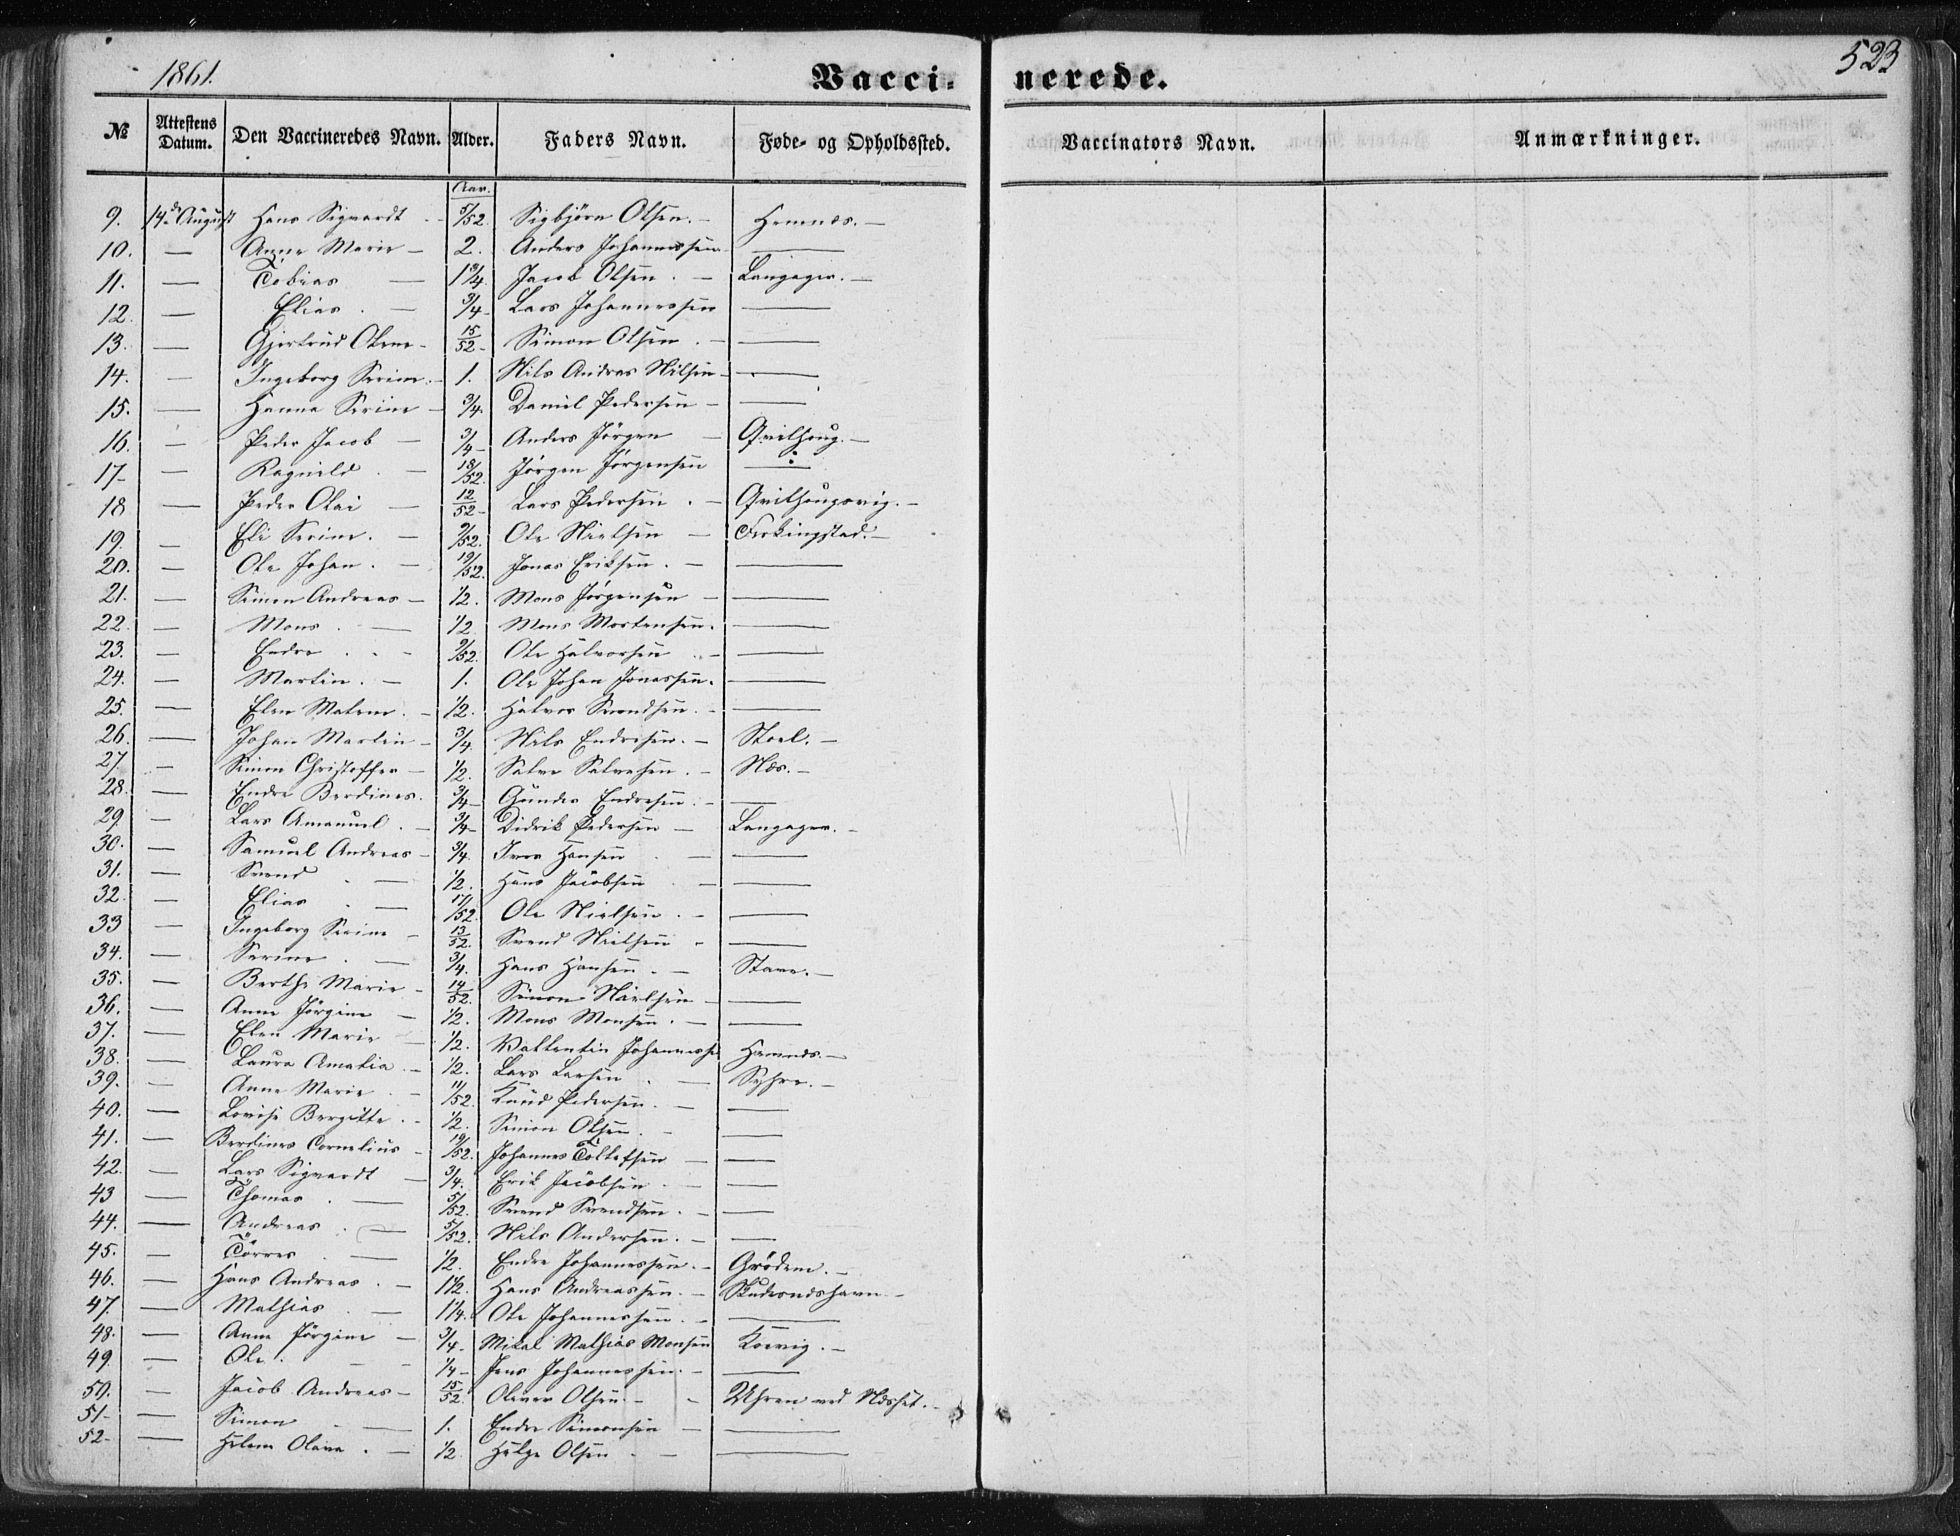 1861.
Vacci- nerede.
523
№ Attestens Datum. Den Vaccineredes Navn. Alder. Faders Navn. Føde- og Opholdssted. Vaccinators Navn. Anmærkninger.
Aar.
9. 14de August Hans Sigvardt - 5/52. Sigbjörn Olsen. - Hemnes. -
10. — Anne Marie - 2. Anders Johannessen - —
11. — Tobias — 1 3/4 Jacob Olsen. - Langager. -
12. — Elias. - 3/4- Lars Johannessen —
13. — Gjertrud Olene - 15/52- Simon Olsen. - —
14. — Ingeborg Serine. - 1. Nils Andreas Nilsen - —
15. — Hanna Serine - 3/4. Daniel Pedersen - —
16. — Peder Jacob - 3/4- Anders Jörgen - Qvilhoug. -
17- — Ragnild. - 18/52. Jörgen Jörgensen —
18 — Peder Olai - 12/52- Lars Pedersen. - Qvilhougsvig. -
19. — Eli Serine. - 9/52. Ole Nielsen - Ferkingstad. -
20. — Ole Johan. - 19/52. Jonas Eriksen. - —
21. — Simon Andreas - 1/2. Mons Jörgensen - —
22. — Mons. — 1/2. Mons Mortensen. —
23. — Endre. - 9/52. Ole Halvorsen. - —
24. — Martin. - 1. Ole Johan Jonassen. —
25. — Elen Malene. - 1/2. Halvor Svendsen. - —
26. — Johan Martin - 3/4. Nils Endresen. - Stoel. -
27. — Simon Christoffer - 1/2. Salve Salvesen. - Næs. -
28. — Endre Berdines. 3/4- Gunder Endresen. - —
29. — Lars Amanuel. - 3/4- Didrik Pedersen - Langager. -
30. — Samuel Andreas - 3/4. Iver Hansen. - —
31. — Svend. - 1/2. Hans Jacobsen. - —
32. — Elias. - 17/52. Ole Nielsen. - —
33 — Ingeborg Serine - 13/52. Svend Nielsen - —
34. — Serine. - 3/4. Hans Hansen. - Stave. -
35. — Berthe Marie - 14/52. Simon Nielsen - —
36. — Anne Jörgine - 1/2. Mons Monsen. - —
37. — Elen Marie - 1/2. Vallentin Johannessen Hemnes. -
38. — Laura Amalia. - 1/2. Lars Larsen. - Syhre. -
39. — Anne Marie. - 11/52. Knud Pedersen. - —
40. — Lovise Bergitte. - 1/2. Simon Olsen. - —
41. — Berdines Cornelius - 19/52. Johannes Tollefsen - —
42. — Lars Sigvardt - 3/4. Erik Jacobsen. - —
43 — Thomas. - 5/52. Svend Svendsen. - —
44. — Andreas. - 5/52. Nils Andersen. - —
45. — Törres. - 1/2. Endre Johannessen. - Grödem. -
46. — Hans Andreas. - 1 1/2. Hans Andreassen. - Skudesnæshavn -
47. — Mathias. - 1 1/4. Ole Johannessen. - —
48. — Anne Jörgine - 3/4- Mikal Mathias Monsen Koevig. -
49. — Ole. - 1/4- Jens Johannessen. - —
50. — Jacob Andreas - 15/52. Oliver Olsen. - Uhren ved Næset. -
51- — Simon - 1. Endre Simonsen - —
52- — Helene Oline. - 1/2. Helge Olsen - —